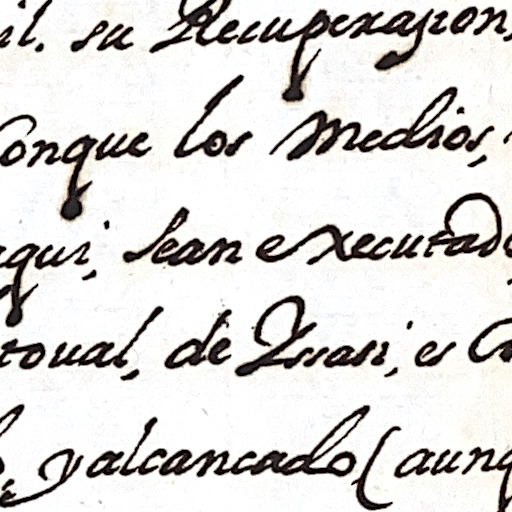 il. su Recuperazion,
Conque los Medios,
aqui, sean executad
toual, de Yssasi, es
yalcancado, (aunq